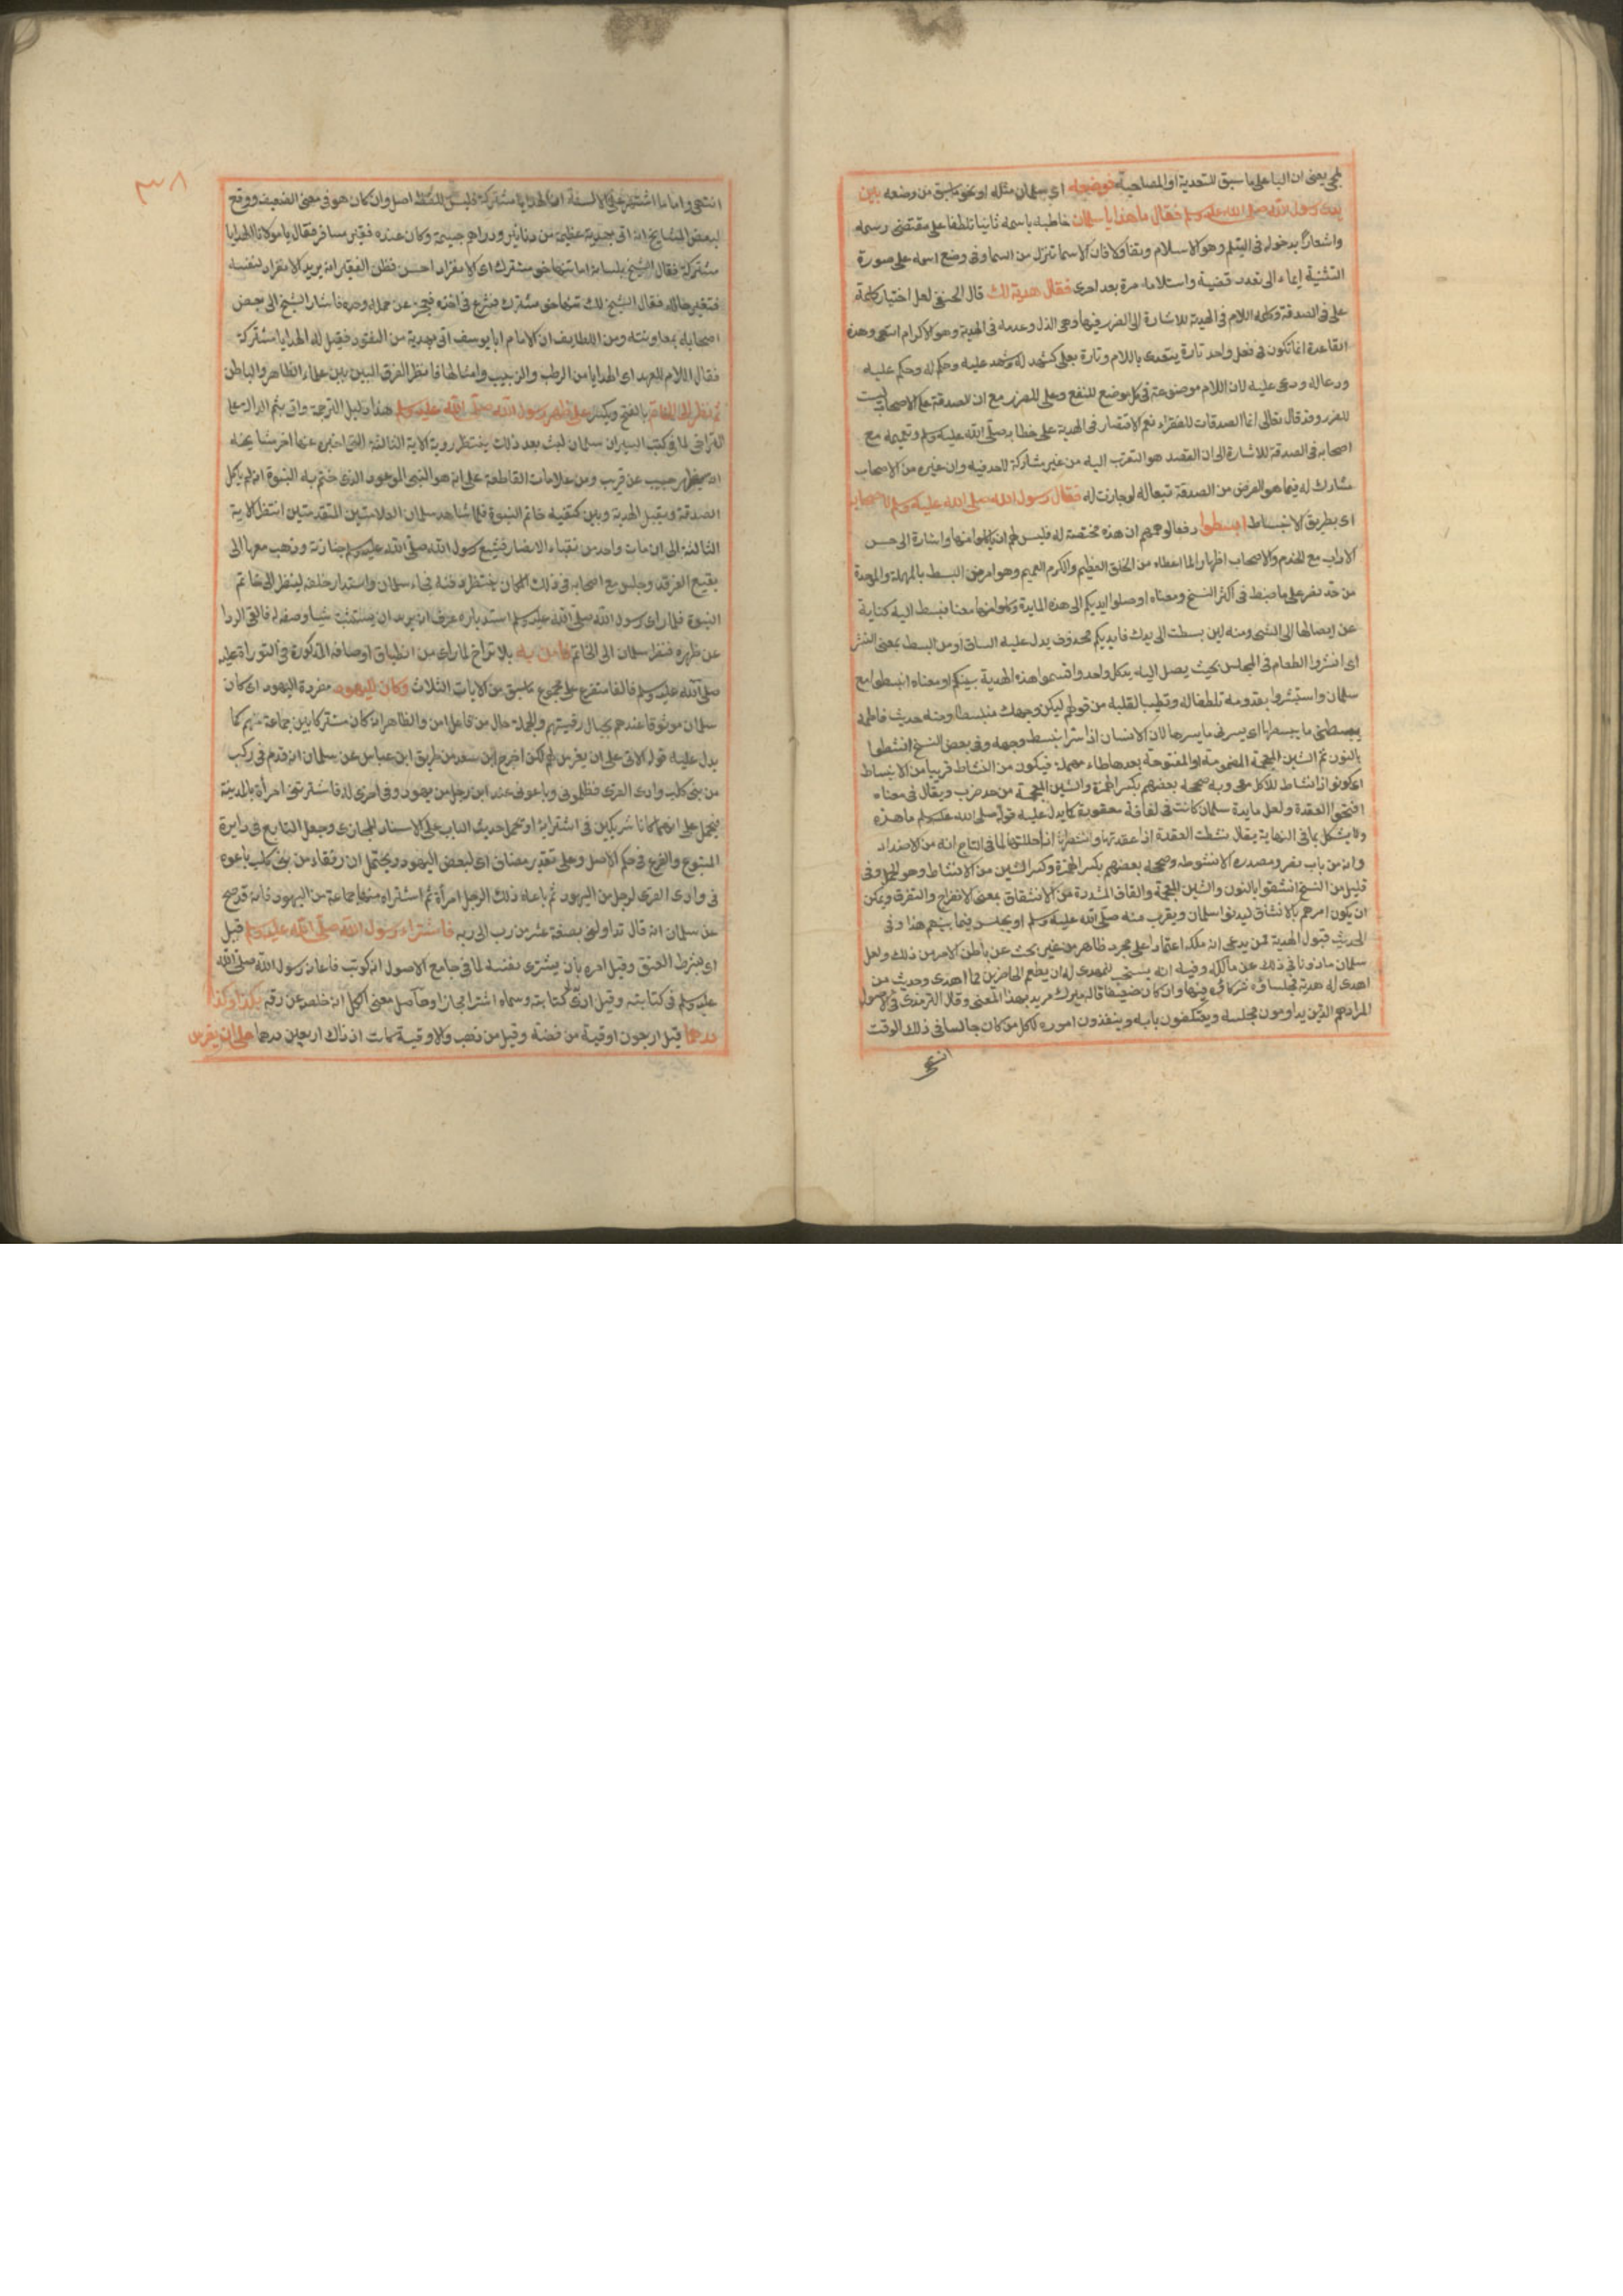 لمجئ يعنى ان الباء على ما سبق للتعدية او المصاحبة فوضعه اى سلمان مثله او نحو ما سبق من وضعه بين
يدى رسول الله صلى الله عليه وسلم فقال ما هذا يا سلمان خاطبه باسمه ثانيا تلطفا على مقتضى رسمه
واشعارا بدخوله فى السلم وهو الاسلام وتفاولا فان الاسما تنزل من السما وفى وضع اسمه على صورة
التثنية ايماء الى تعدد قضية واستلامه مرة بعد اخرى فقال هدية لك قال الحنفى لعل اختيار كلمة
على فى الصدقة وكلمة اللام فى الهدية للاشارة الى الضرر فيها وهى الذل وعدمه فى الهدية وهو الاكرام انتهى وهذه
القاعدة انما تكون فى فعل واحد تارة يتعدى باللام وتارة بعلى كشهد له وشهد عليه وحكم له وحكم عليه
ودعا له ودعى عليه لان اللام موضوعة فى كل موضع للنفع وعلى للضرر مع ان الصدقة على الاصحاب ليست
للضرر وقد قال تعالى انما الصدقات للفقراء نعم الاقتصار فى الهدية على خطابه صلى الله عليه وسلم وتعميمه مع
اصحابه فى الصدقة للاشارة الى ان القصد هو التقرب اليه من غير مشاركة لاحد فيه وان غيره من الاصحاب
مشارك له فيما هو الغرض من الصدقة تبعا له لو جازت له فقال رسول الله صلى الله عليه وسلم لاصحابه
اى بطريق الانبساط ابسطوا دفعا لوهمهم ان هذه مختصة له فليس لهم ان ياكلوا منها واشارة الى حسن
الاداب مع الخدم والاصحاب اظهارا لما اعطاه من الخلق العظيم والكرم العميم وهو امر من البسط بالمهملة والموحدة
من حد نصر على ما ضبط فى اكثر النسخ ومعناه اوصلوا ايديكم الى هذه المايدة وكلوا منها معنا فبسط اليد كناية
عن ايصالها الى الشئ ومنه لئن بسطت الى يدك فايديكم محذوف يدل عليه السياق او من البسط بمعنى النشر
اى انشروا الطعام فى المجلس بحيث يصل اليه يد كل واحد واقسموا هذه الهدية بينكم او معناه انبسطوا مع
سلمان واستبشروا بقدومه تلطفا له وتطييبا لقلبه من قولهم ليكن وجهك منبسطا ومنه حديث فاطمة
يبسطنى ما يبسطها اى يسرنى ما يسرها لان الانسان اذا سر انبسط وجهه وفى بعض النسخ انشطوا
بالنون ثم الشين المعجمة المضمومة او المفتوحة بعدها طاء مهملة فيكون من النشاط قريبا من الانبساط
اى كونوا ذا نشاط للاكل معى وبه صححه بعضهم بكسر الهمزة والشين المعجمة من حد ضرب ويقال فى معناه
افتحوا العقدة ولعل مايدة سلمان كانت فى لفافة معقودة كما يدل عليه قوله صلى الله عليه وسلم ما هذه
ولا يشكل بما فى النهاية يقال نشطت العقدة اذا عقدتها وانشطتها اذا حللتها لما فى التاج انه من الاضداد
وانه من باب نصر ومصدره الانشوطه وصححه بعضهم بكسر الهمزة وكسر الشين من الانشاط وهو الحل وفى
قليل من النسخ انشقوا بالنون والشين المعجمة والقاف المشددة من الانشقاق بمعنى الانفراج والتفرق ويمكن
ان يكون امرهم بالانشقاق ليدنوا سلمان ويقرب منه صلى الله عليه وسلم او يجلس فيما بينهم هذا وفى
الحديث قبول الهدية ممن يدعى انه ملكه اعتمادا على مجرد ظاهر من غير بحث عن باطن الامر من ذلك ولعل
سلمان ماذونا فى ذلك عن مالكه وفيه انه يستحب للمهدى له ان يطعم الحاضرين مما اهدى وحديث من
اهدى له هدية فجلساؤه شركاؤه فيها وان كان ضعيفا قاله ميرك مؤيد بهذا المعنى وقال الترمذى فى الاصول
المراد هم الذين يداومون مجلسه ويعتكفون بابه وينفذون اموره لا كل من كان جالسا فى ذلك الوقت
انتهى
٣٨
انتهى واما ما اشتهر على الالسنة ان الهدايا مشتركة فليس للفظه اصل وان كان هو فى معنى الضعيف ووقع
لبعض المشايخ انه اتى بهدية عظيمة من دنانير ودراهم جسيمة وكان عنده فقير مسافر فقال يا مولانا الهدايا
مشتركة فقال الشيخ بلسانه اما تنها خوشترك اى الانفراد احسن فظن الفقير انه يريد الانفراد لنفسه
فتغير حاله فقال الشيخ لك تنها خوشترك فشرع فى اخذه فعجز عن حمله وحده فاشار الشيخ الى بعض
اصحابه بمعاونته ومن اللطايف ان الامام ابا يوسف اتى بهدية من النقود فقيل له الهدايا مشتركة
فقال اللام للعهد اى الهدايا من الرطب والزبيب وامثالها فانظر الفرق البين بين علماء الظاهر والباطن
ثم نظر الى الخاتم بالفتح ويكسر على ظهر رسول الله صلى الله عليه وسلم هذا دليل الترجمة واتى بثم الدال على
التراخى لما فى كتب السير ان سلمان لبث بعد ذلك ينتظر روية الاية الثالثة التى اخبره عنها اخر مشايخه
انه سيظهر حبيب عن قريب ومن علامات القاطعة على انه هو النبى الموعود الذى ختم به النبوة انه لم ياكل
الصدقة ويقبل الهدية وبين كتفيه خاتم النبوة فلما شاهد سلمان العلامتين المتقدمتين انتظر الاية
الثالثة الى ان مات واحد من نقباء الانصار فشيع رسول الله صلى الله عليه وسلم جنازته وذهب معها الى
بقيع الغرقد وجلس مع اصحابه فى ذلك المكان ينتظر دفنه فجاء سلمان واستدار خلفه لينظر الى خاتم
النبوة فلما راى رسول الله صلى الله عليه وسلم استدباره عرف انه يريد ان يستثبت شيا وصف له فالقى الردا
عن ظهره فنظر سلمان الى الخاتم فامن به بلا تراخ لما راى من انطباق اوصافه المذكورة فى التوراة عليه
صلى الله عليه وسلم فالفا متفرع على مجموع ما سبق من الايات الثلاث وكان لليهود مفرده اليهود اى كان
سلمان موثوقا عندهم بحبال رقيتهم والجملة حال من فاعل امن والظاهر انه كان مشتركا بين جماعة منهم كما
يدل عليه قوله الاتى على ان يغرس لهم لكن اخرج ابن سعد من طريق ابن عباس عن سلمان انه قدم فى ركب
من بنى كلب وادى القرى فظلمونى وباعونى عبدا من رجل من يهود وفى اخرى له فاشترتنى امراة بالمدينة
فيحمل على انهما كانا شريكين فى اشترايه او يحمل حديث الباب على الاسناد المجازى وجعل التابع فى دايرة
المتبوع والفرع فى حكم الاصل وعلى تقدير مضاف اى لبعض اليهود ويحتمل ان رفقاءه من بنى كلب باعوه
فى وادى القرى لرجل من اليهود ثم باعه ذلك الرجل امراة ثم اشتراه منها جماعة من اليهود فانه قد صح
عن سلمان انه قال تداولنى بضعة عشر من رب الى رب فاشتراه رسول الله صلى الله عليه وسلم قيل
اى بشرط العتق وقيل امره بان يشترى نفسه لما فى جامع الاصول انه كوتب فاعانه رسول الله صلى الله
عليه وسلم فى كتابته وقيل ادى كتابته وسماه اشترا مجازا وحاصل معنى الكل انه خلصه عن رقه بكذا وكذا
درهما قيل اربعون اوقية من فضة وقيل من ذهب والاوقية كانت اذ ذاك اربعين درهما على ان يغرس